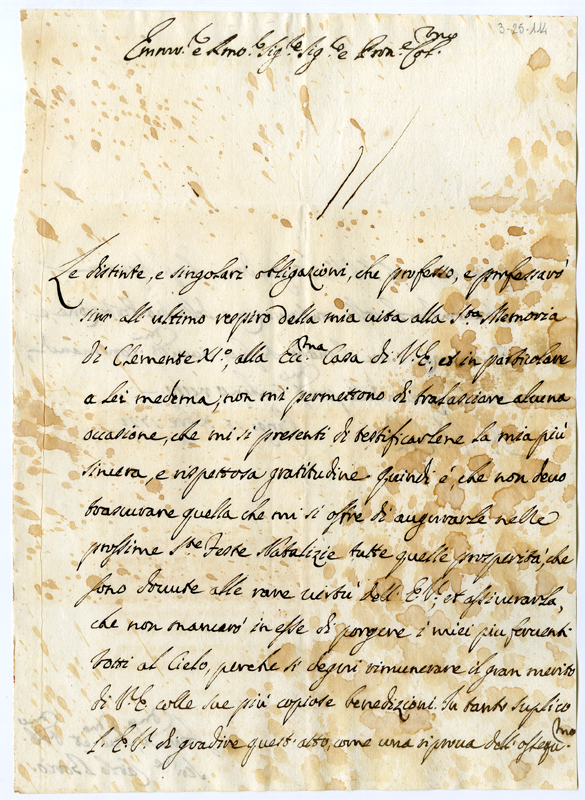 3-25-114
Emin.e e Rmo.e Sig.e Sig.e e Pron.e Col.mo
Le distinte, e singolari obligazioni, che professo, e professarò
sino all'ultimo respiro della mia vita alla S.ta Memoria
di Clemente XI.o, alla Ecc.ma Casa di V.E., et in particolare
a Lei medema, non mi permettono di tralasciare alcuna
occasione, che mi si presenti di testificarlene la mia più
sincera, e rispettosa gratitudine. Quindi é che non devo
trascurare quella che mi si offre di augurarle nelle
prossime S.te Feste Natalizie tutte quelle prosperità, che
sono dovute alle rare virtù dell'E.V., et assicurarla,
che non mancarò in esse di porgere i miei piu ferventi
Votti al Cielo, perche si degni rimunerare il gran merito
di V.E. colle sue più copiose benedizioni. In tanto suplico
l'E.V. di gradire quest'atto, come una riprova dell'ossequ.mo